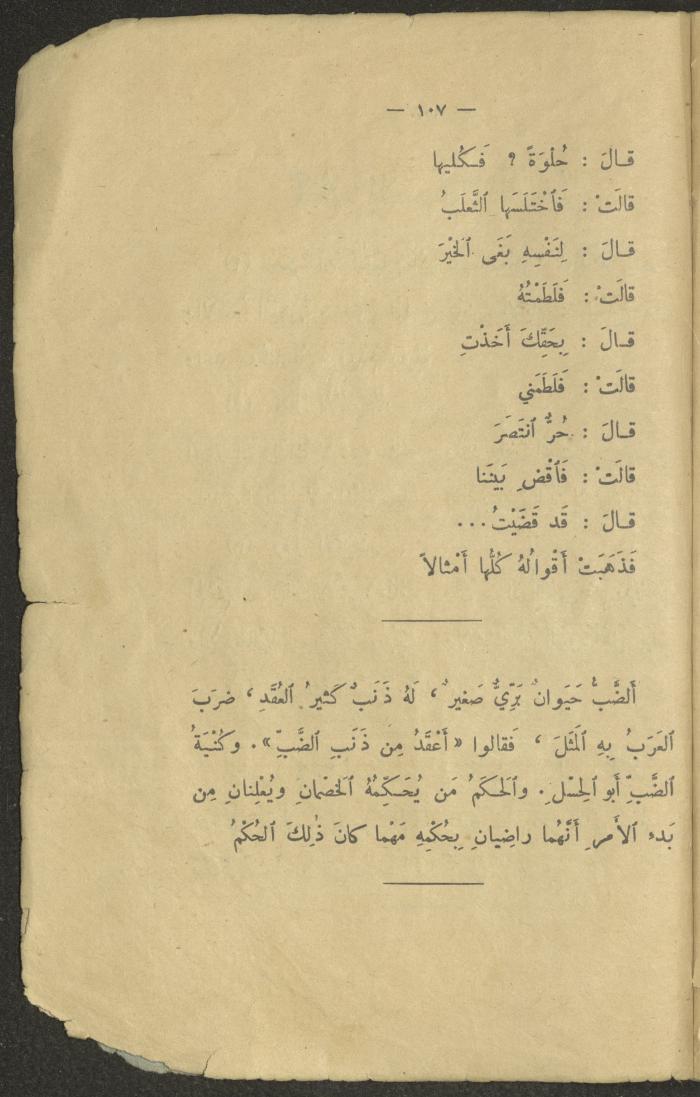 — ١٠٧ —
قـالَ : حُلْوَةً ؟ فَـكُليها
قالَتْ : فَٱخْتَلَسَها ٱلثَّعلَبُ
قـالَ : لِنَفْسِهِ بَغَى ٱلخَيْرَ
قالَتْ : فَلَطَمْتُهُ
قـالَ : بِحَقِّكَ أَخَذْتِ
قالَتْ : فَلَطَمَني
قـالَ : حُرٌّ ٱنتَصَرَ
قالَتْ : فَٱقْضِ بَيْنَنا
قـالَ : قَد قَضَيْتُ...
فَذَهَبَتْ أَقْوالُهُ كُلُّها أَمْثالاً
أَلضَّبُّ حَيَوانٌ بَرِّيٌّ صَغيرٌ ، لَهُ ذَنَبٌ كَثيرُ ٱلعُقَدِ ، ضرَبَ
ٱلعَرَبُ بِهِ ٱلمَثَلَ ، فَقالوا «أَعْقَدُ مِن ذَنَبِ ٱلضَّبِّ». وكُنْيَةُ
ٱلضَّبِّ أَبو ٱلحِسْلِ. وٱلحَكَمُ مَن يُحَكِّمُهُ ٱلخَصْمانِ ويُعْلِنانِ مِن
بَدءِ ٱلأَمرِ أَنَّهُما راضِيانِ بِحُكْمِهِ مَهْما كانَ ذٰلِكَ ٱلحُكْمُ